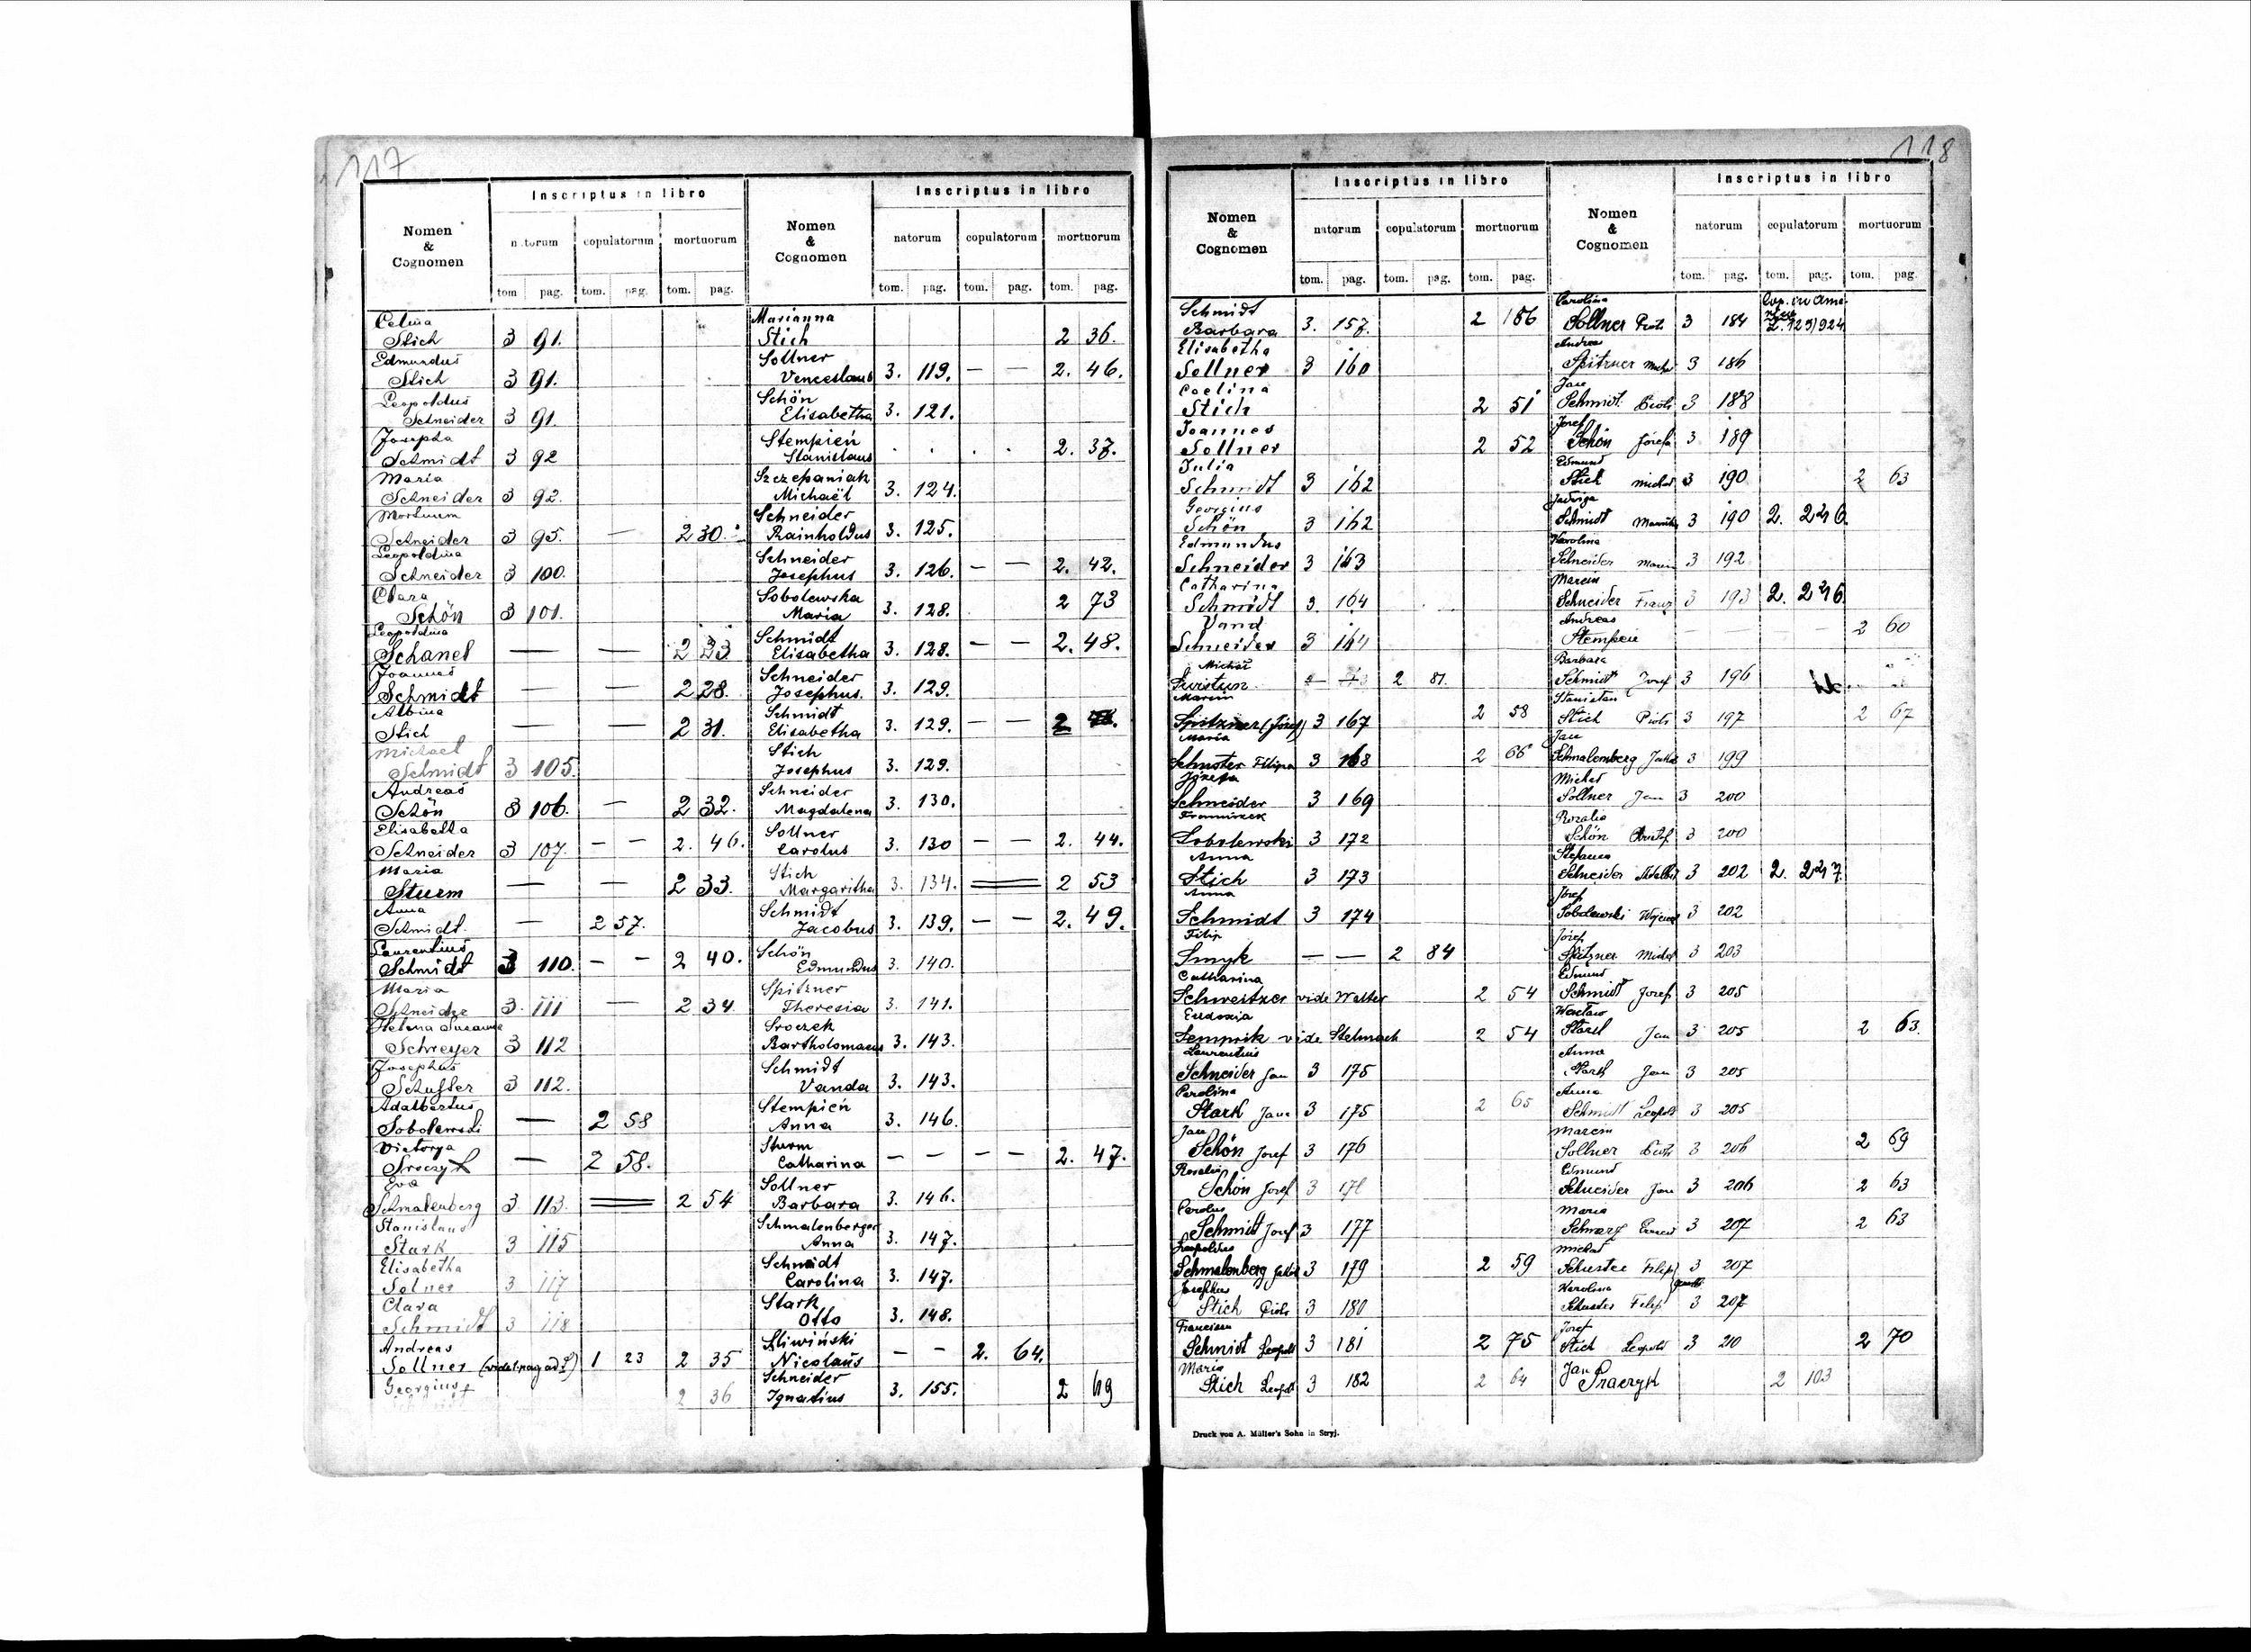 117
Nomen & Cognomen
Inscriptus in libro
natorum copulatorum mortuorum
tom. pag. tom. pag. tom. pag.
Celina
Stich 3 91.
Edmundus
Stich 3 91.
Leopoldus
Schneider 3 91.
Josepha
Schmidt 3 92
Maria
Schneider 3 92.
Mortuum
Schneider 3 95. — 2 30.
Leopoldina
Schneider 3 100.
Clara
Schön 3 101.
Leopoldina
Schanel — — 2 33
Joannes
Schmidt — — 2 28.
Albina
Stich — — 2 31.
Michael
Schmidt 3 105.
Andreas
Schön 3 106. — 2 32.
Elisabetha
Schneider 3 107. — — 2. 46.
Maria
Sturm — — 2 33.
Anna
Schmidt — 2 57.
Laurentius
Schmidt 3 110. — — 2 40.
Maria
Schneider 3. 111 — 2 34.
Helena Susanna
Schreyer 3 112
Josephus
Schuster 3 112.
Adalbertus
Sobolewski — 2 58
Victorya
Sroczyk — 2 58.
Eva
Schmalenberg 3 113. 2 54
Stanislaus
Stark 3 115
Elisabetha
Solner 3 117
Clara
Schmidt 3 118
Andreas
Sollner 1 23 2 35
Georgius
2 36
Nomen & Cognomen
Inscriptus in libro
natorum copulatorum mortuorum
tom. pag. tom. pag. tom. pag.
Marianna
Stich 2 36.
Sollner
Venceslaus 3. 119. — — 2. 46.
Schön
Elisabetha 3. 121.
Stempień
Stanislaus . . . . 2. 37.
Szczepaniak
Michaël 3. 124.
Schneider
Rainholdus 3. 125.
Schneider
Josephus 3. 126. — — 2. 42.
Sobolewska
Maria 3. 128. 2 73
Schmidt
Elisabetha 3. 128. — — 2. 48.
Schneider
Josephus. 3. 129.
Schmidt
Elisabetha 3. 129. — — 2
Stich
Josephus 3. 129.
Schneider
Magdalena 3. 130.
Sollner
Carolus 3. 130 — — 2. 44.
Stich
Margaritha 3. 134. 2 53
Schmidt
Jacobus 3. 139. — — 2. 49.
Schön
Edmundus 3. 140.
Spitzner
Theresia 3. 141.
Sroczek
Bartholomaeus 3. 143.
Schmidt
Vanda 3. 143.
Stempień
Anna 3. 146.
Sturm
Catharina — — — — 2. 47.
Sollner
Barbara 3. 146.
Schmalenberger
Anna 3. 147.
Schmidt
Carolina 3. 147.
Stark
Otto 3. 148.
Śliwiński
Nicolaus — — 2. 64.
Schneider
Ignatius 3. 155. 2 69
118
Nomen & Cognomen
Inscriptus in libro
natorum copulatorum mortuorum
tom. pag. tom. pag. tom. pag.
Schmidt
Barbara 3. 157. 2 186
Elisabetha
Sollner 3 160
Coelina
Stich 2 51
Joannes
Sollner 2 52
Julia
Schmidt 3 162
Georgius
Schön 3 162
Edmundus
Schneider 3 163
Catharina
Schmidt 3. 164
Vand
Schneider 3 164
Michał
Świstun 2 81.
Marcin
Spitzner (Józef) 3 167 2 58
Maria
Schuster Filipa 3 168 2 66
Józefa
Schneider 3 169
Franciszek
Sobolewski 3 172
Anna
Stich 3 173
Anna
Schmidt 3 174
Filip
Smyk — — 2 84
Catharina
Schweitzer vide Walter 2 54
Eudoxia
Sempnik vide Stelmach 2 54
Laurentius
Schneider Jan 3 175
Carolina
Stark Jana 3 175 2 65
Jan
Schön Josef 3 176
Rosalia
Schön Josef 3
Carolus
Schmidt Josef 3 177
Leopoldus
Schmalenberg Jakób 3 179 2 59
Josephus
Stich Piotr 3 180
Francisca
Schmidt Leopold 3 181 2 75
Maria
Stich Leopold 3 182 2 64
Druck von A. Müller's Sohn in Stryj.
Nomen & Cognomen
Inscriptus in libro
natorum copulatorum mortuorum
tom. pag. tom. pag. tom. pag.
Carolina Cop. in Ame
Sollner Piotr 3 184 L. 123/924
Andrea
Spitzner Michał 3 186
Jan
Schmidt Piotr 3 188
Józef
Schön Józefa 3 189
Edmund
Stich Michał 3 190 2 63
Jadwiga
Schmidt 3 190 2. 246.
Karolina
Schneider Marcin 3 192
Marcin
Schneider Franz 3 193 2. 246
Andreas
Stempien — — — — 2 60
Barbara
Schmidt Josef 3 196
Stanislau
Stich Piotr 3 197 2 67
Jan
Schmalemberg Jakób 3 199
Michał
Sollner Jan 3 200
Rozalia
Schön 3 200
Stefania
Schneider Adalbert 3 202 2. 247.
Józef
Sobolewski Wojciech 3 202
Józef
Spitzner Michał 3 203
Edmund
Schmidt Josef 3 205
Wacław
Stark Jan 3 205 2 63.
Anna
Stark Jan 3 205
Anna
Schmidt Leopold 3 205
Marcin
Sollner Piotr 3 206 2 69
Edmund
Schneider Jan 3 206 2 63
Maria
Schwarz 3 207 2 63
Michał
Schuster Filip 3 207
Karolina
Schuster Filip 3 207
Josef
Stich Leopold 3 210 2 70
Jan
Sraczyk 2 103